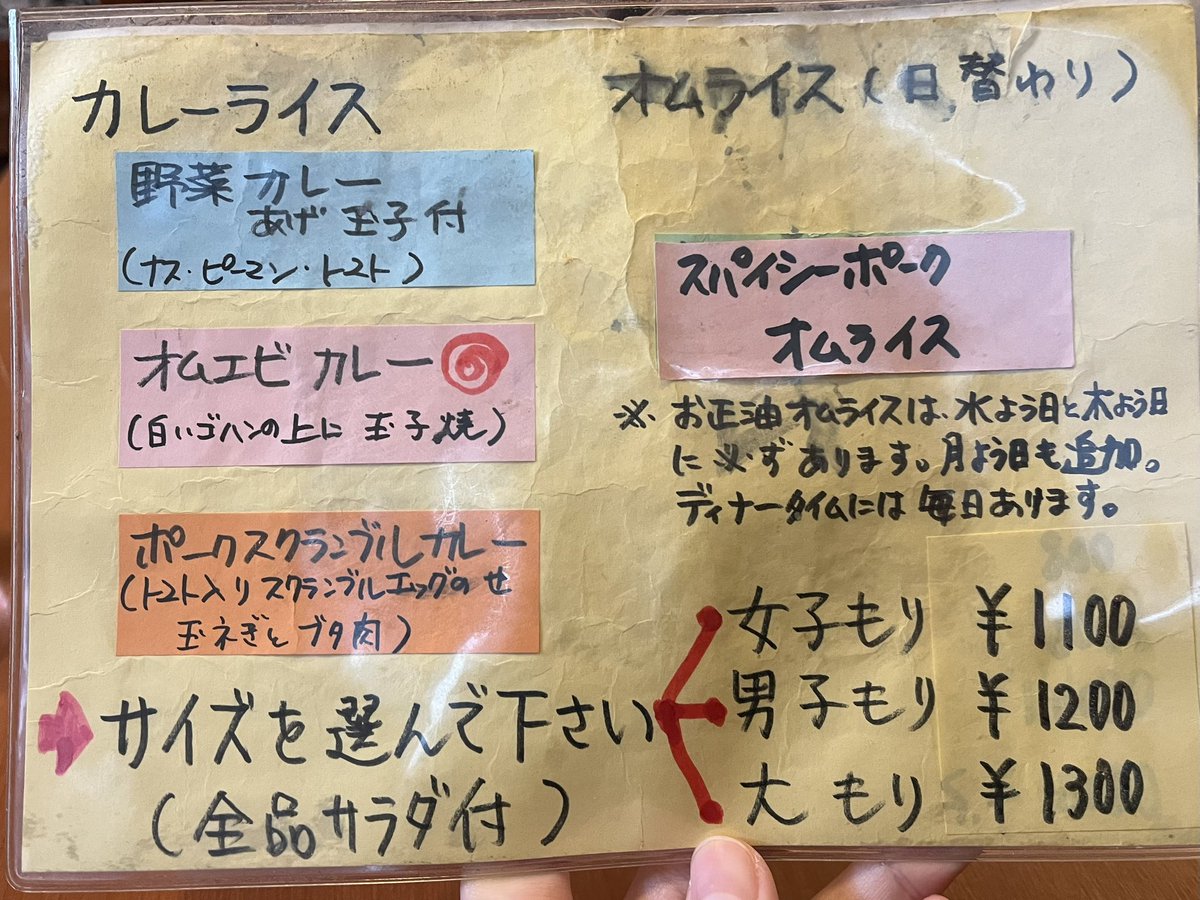 カレーライス
野菜カレー
あげ玉子付
(ナス・ピーマン・トマト)
オムエビカレー
(白いゴハンの上に玉子焼)
ポークスクランブルカレー
(トマト入りスクランブルエッグのせ
玉ネギとブタ肉)
オムライス(日替わり)
スパイシーポーク
オムライス
※お正油オムライスは、水よう日と木よう日
に必ずあります。月よう日も追加。
ディナータイムには毎日あります。
サイズを選んで下さい
(全品サラダ付)
女子もり ¥1100
男子もり ¥1200
大もり ¥1300